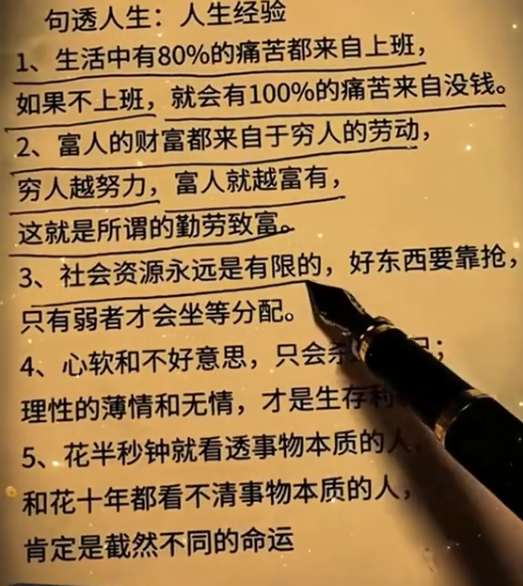 句透人生：人生经验
1、生活中有80%的痛苦都来自上班，
如果不上班，就会有100%的痛苦来自没钱。
2、富人的财富都来自于穷人的劳动，
穷人越努力，富人就越富有，
这就是所谓的勤劳致富。
3、社会资源永远是有限的，好东西要靠抢，
只有弱者才会坐等分配。
4、心软和不好意思，只会杀；
理性的薄情和无情，才是生存
5、花半秒钟就看透事物本质的人，
和花十年都看不清事物本质的人，
肯定是截然不同的命运